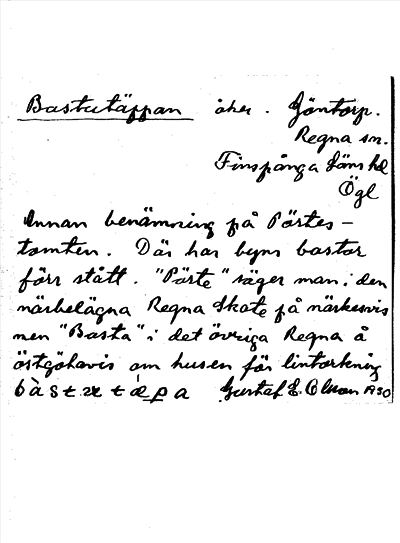 Bastutäppan åker. Göntorp.
Regna sn.
Finspånga läns hd
Ögl
Annan benämning på Pörtes-
tomten. Där har byns bastor
förr stått. "Pörte" säger man i den
närbelägna Regna Skate på närkesvis
men "Basta" i det övriga Regna å
östgötavis om husen för lintorkning
Gustaf E. Olsson 1930